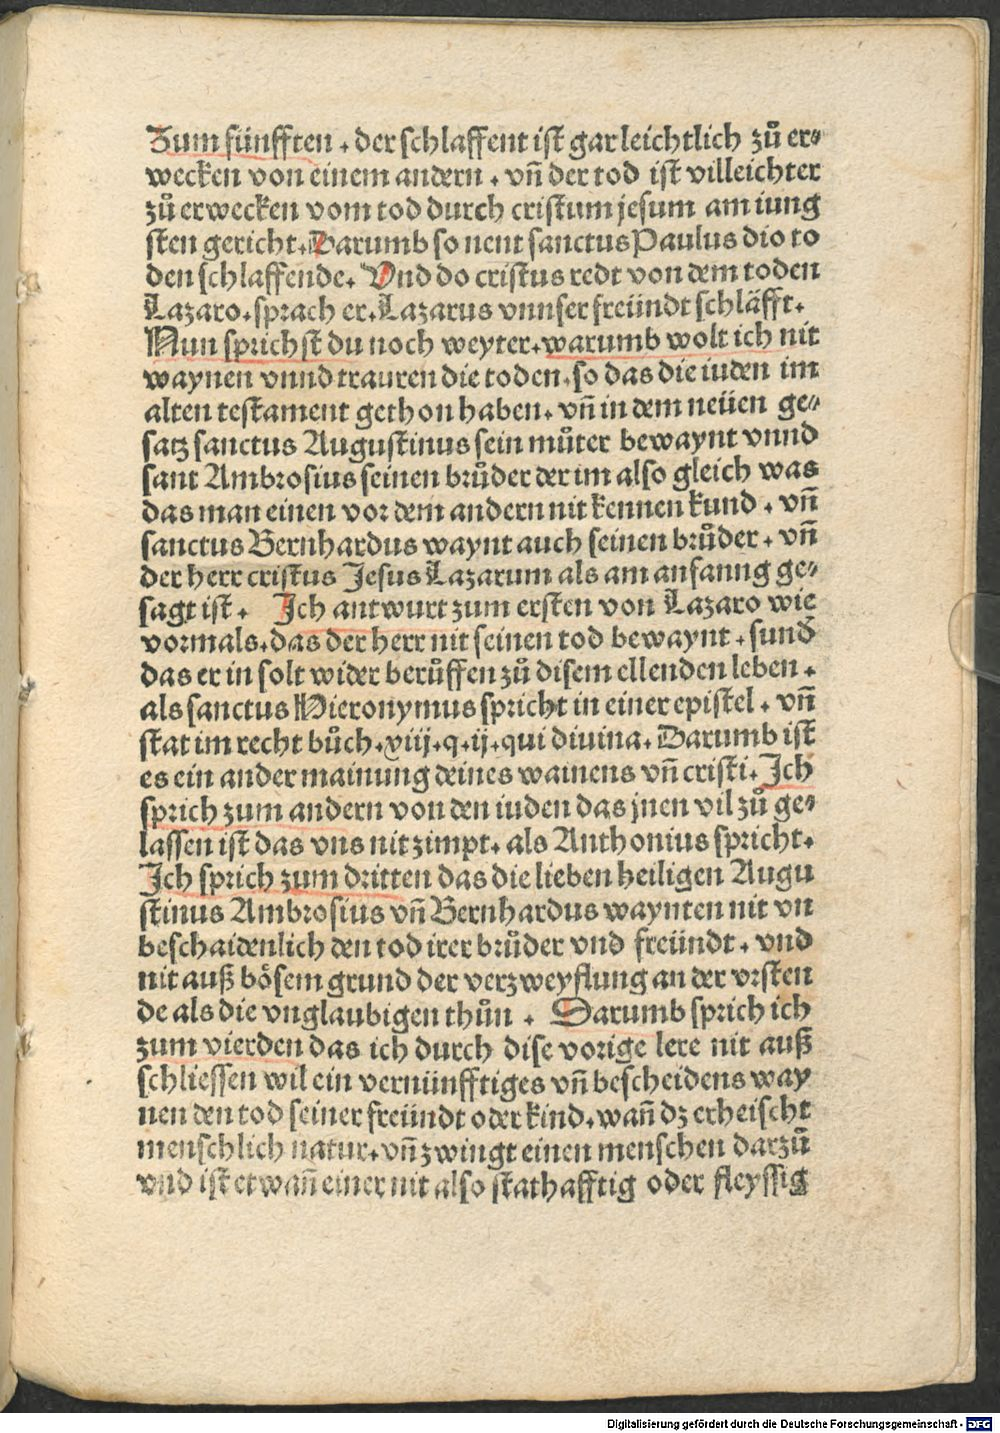 Zum fünfften . der schlaffent ist gar leichtlich zů er⸗
wecken von einem andern . vñ der tod ist villeichter
zů erwecken vom tod durch cristum jesum am iung
sten gericht. Darumb so nent sanctus Paulus dio to
den schlaffende. Vnd do cristus redt von dem toden
Lazaro. sprach er. Lazarus vnnser freündt schläfft.
Nun sprichst du noch weyter. warumb wolt ich nit
waynen vnnd trauren die toden. so das die iuden im
alten testament gethon haben. vñ in dem neüen ge⸗
satz sanctus Augustinus sein můter bewaynt vnnd
sant Ambrosius seinen brůder der im also gleich was
das man einen vor dem andern nit kennen kund . vñ
sanctus Bernhardus waynt auch seinen brůder . vñ
der herr cristus Jesus Lazarum als am anfanng ge⸗
sagt ist . Ich antwurt zum ersten von Lazaro wie
vormals. das der herr nit seinen tod bewaynt . sund̄
das er in solt wider berůffen zů disem ellenden leben .
als sanctus Hieronymus spricht in einer epistel . vñ
stat im recht bůch . xiij . q . ij . qui divina. Darumb ist
es ein ander mainung deines wainens vñ cristi. Ich
sprich zum andern von den iuden das jnen vil zů ge⸗
lassen ist das vns nit zimpt. als Anthonius spricht.
Ich sprich zum dritten das die lieben heiligen Augu
stinus Ambrosius vñ Bernhardus waynten nit vn
beschaidenlich den tod irer brůder vnd freündt . vnd
nit auß bösem grund der verzweyflung an der vrsten
de als die vnglaubigen thůn . Darumb sprich ich
zum vierden das ich durch dise vorige lere nit auß
schliessen wil ein vernünfftiges vñ bescheidens way
nen den tod seiner freündt oder kind. wañ dz erheischt
menschlich natur. vñ zwingt einen menschen darzů
vnd ist etwañ einer nit also stathafftig oder fleyssig
Digitalisierung gefördert durch die Deutsche Forschungsgemeinschaft - DFG